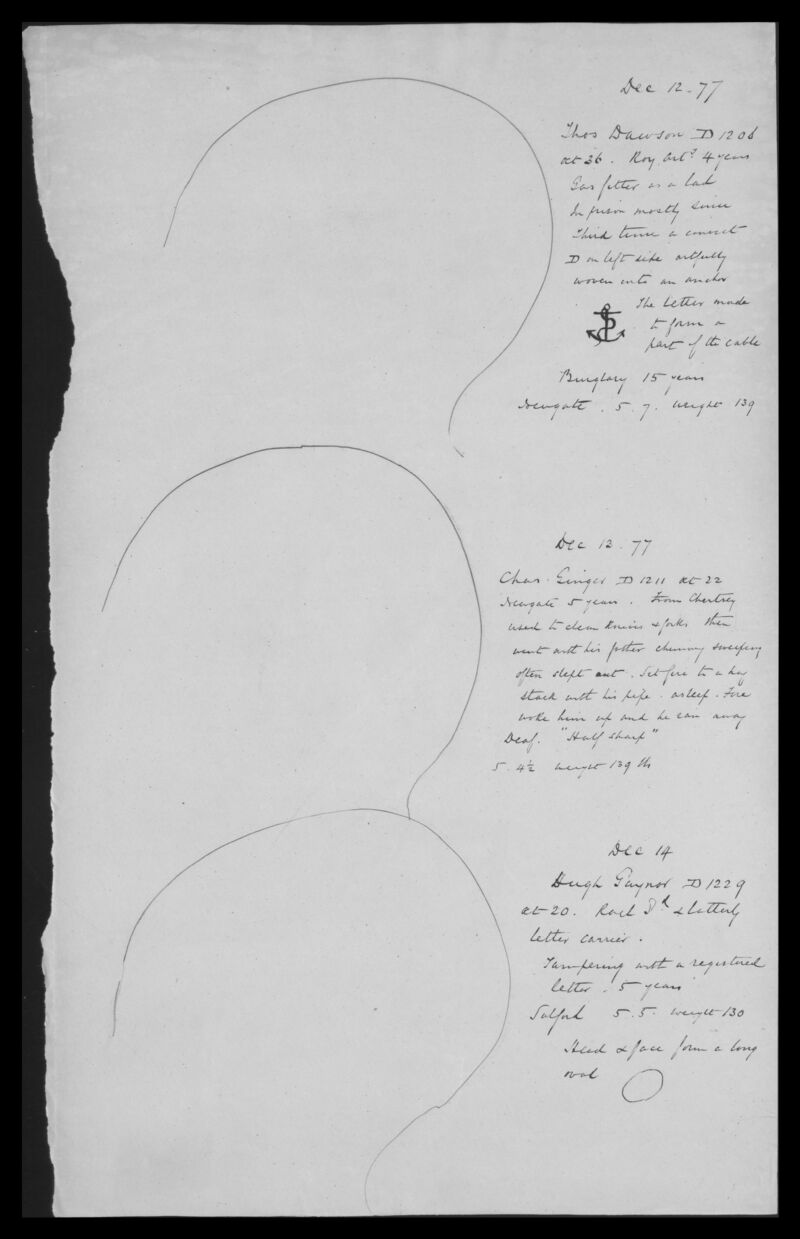 Dec 12. 77
Thos Dawson D 1206
æt 36. Roy Arty 4 years
Gas fitter as a lad
In prison mostly since
Third time a convict
D on left side artfully
woven into an anchor
The letter made
to form a
part of the cable
Burglary 15 years
Newgate. 5. 7. weight 139
Dec 12. 77
Chas. Ginger D 1211 æt 22
Newgate 5 years. From Chertsey
used to clean knives & forks then
went with his father chimney sweeping
often slept out. Set fire to a hay
stack with his pipe. asleep. Fire
woke him up and he ran away
Deaf. "Half sharp"
5. 4½ weight 139 lbs
Dec 14
Hugh Gaynor D 1229
æt 20. & latterly
letter carrier.
Tampering with a registered
letter. 5 years
Salford 5. 5. weight 130
Head & face form a long
oval